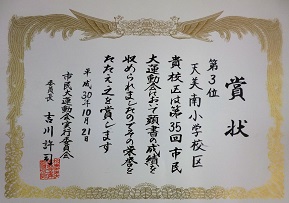 賞状
第3位
天美南小学校区
貴校区は第35回市民
大運動会において頭書の成績を
収められましたのでその栄誉を
たたえ之を賞します
平成30年10月21日
市民大運動会実行委員会
委員長 吉川許司